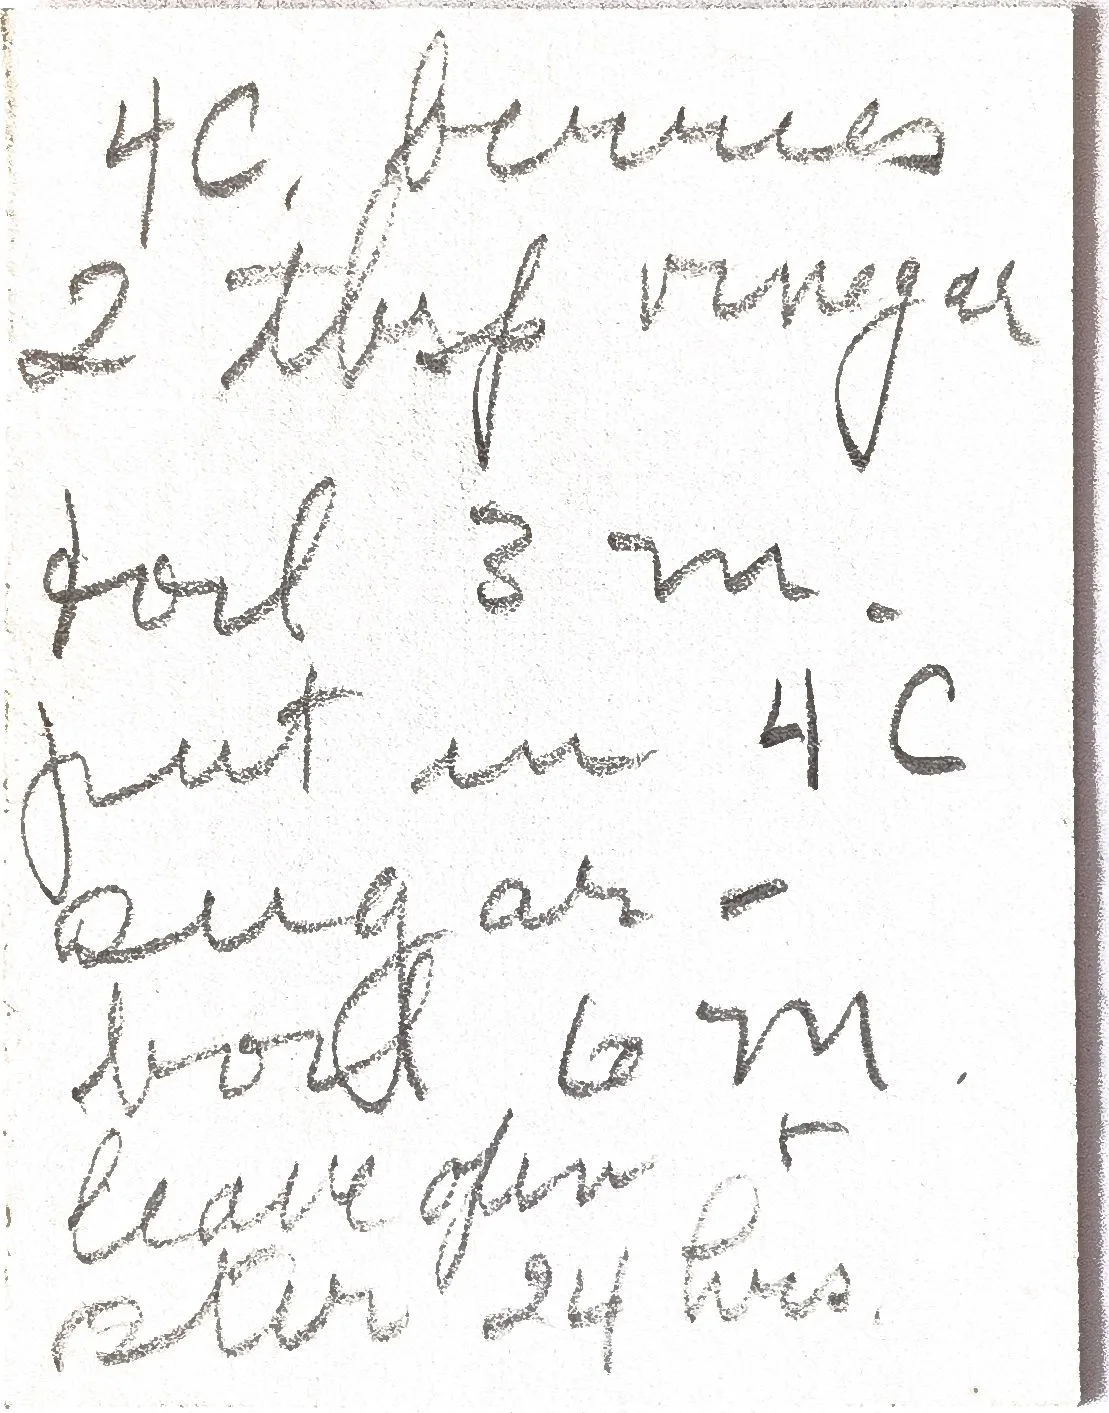 4C. berries
2 tbsp vinegar
boil 3 m.
put in 4 C
sugar -
boil 6 m.
leave open +
stir 24 hrs.